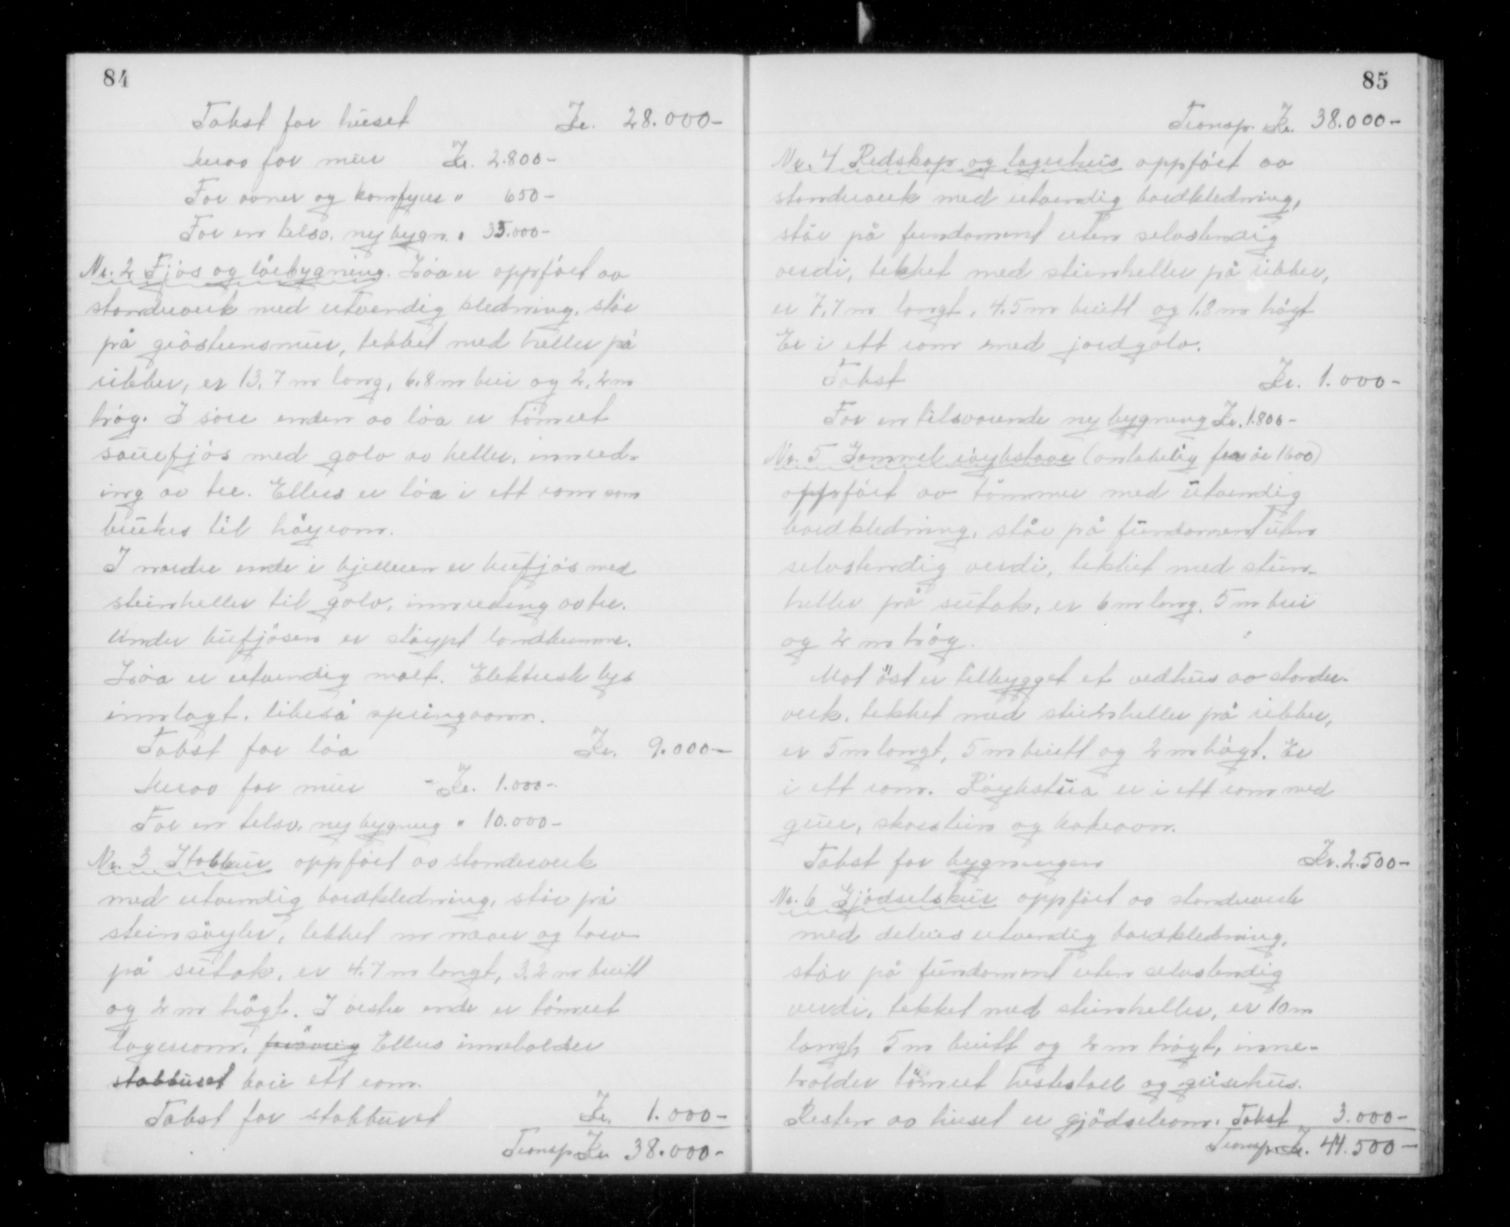 84
Takst for huset Kr. 28.000-
Herav for mur Kr. 2.800-
For ovner og komfyrer " 650-
For en tilsv. ny bygn. " 35.000-
Nr. 2 Fjøs og løebygning. Løa er oppført av
standerverk med utvendig kledning, står
på gråsteinsmur, tekket med heller på
ribber, er 13,7 m lang, 6,8 m brei og 2,2 m
høg. I søre enden av løa er tømret
sauefjøs med golv av heller, innred-
ing av tre. Ellers er løa i ett rom som
brukes til høyrom.
I nordre ende i kjelleren er kufjøs med
steinheller til golv, innreding av tre.
Under kufjøsen er støypt landkumme.
Løa er utvendig malt. Elektrisk lys
innlagt, likeså springvann.
Takst for løa Kr. 9.000-
Herav for mur - Kr. 1.000-
For en tilsv. ny bygning " 10.000-
Nr. 3 Stabbur oppført av standerverk
med utvendig bordkledning, står på
steinsøyler, tekket m næver og torv
på sutak, er 4,7 m langt, 3,2 m breitt
og 2 m høgt. I vestre ende er tømret
lagerrom, Ellers inneholder
stabburet bare ett rom.
Takst for stabburet Kr. 1.000-
Transp. Kr 38.000-
85
Transp. Kr. 38.000-
Nr. 4 Redskaps og lagerhus oppført av
standerverk med utvendig bordkledning,
står på fundament uten selvstendig
verdi, tekket med steinheller på ribber,
er 7,7 m langt, 4,5 m breitt og 1,8 m høgt
Er i ett rom med jordgolv.
Takst Kr. 1.000-
For en tilsvarende ny bygning Kr. 1.800-
Nr. 5 Gammel røykstove (antakelig fra år 1600)
oppført av tømmer med utvendig
bordkledning, står på fundament uten
selvstendig verdi, tekket med stein-
heller på sutak, er 6 m lang, 5 m brei
og 2 m høg.
Mot öst er tilbygget et vedhus av stander-
verk, tekket med steinheller på ribber,
er 5 m langt, 5 m breitt og 2 m høgt. Er
i ett rom. Røykstua er i ett rom med
grue, skorstein og bakerovn.
Takst for bygningen Kr. 2.500-
Nr. 6 Gjødselskur oppført av standerverk
med delvis utvendig bordkledning,
står på fundament uten selvstendig
verdi, tekket med steinheller, er 10 m
langt, 5 m breitt og 2 m høgt, inne-
holder tømret hestestall og grisehus.
Resten av huset er gjødselrom. Takst 3.000-
Transp. Kr. 44.500-